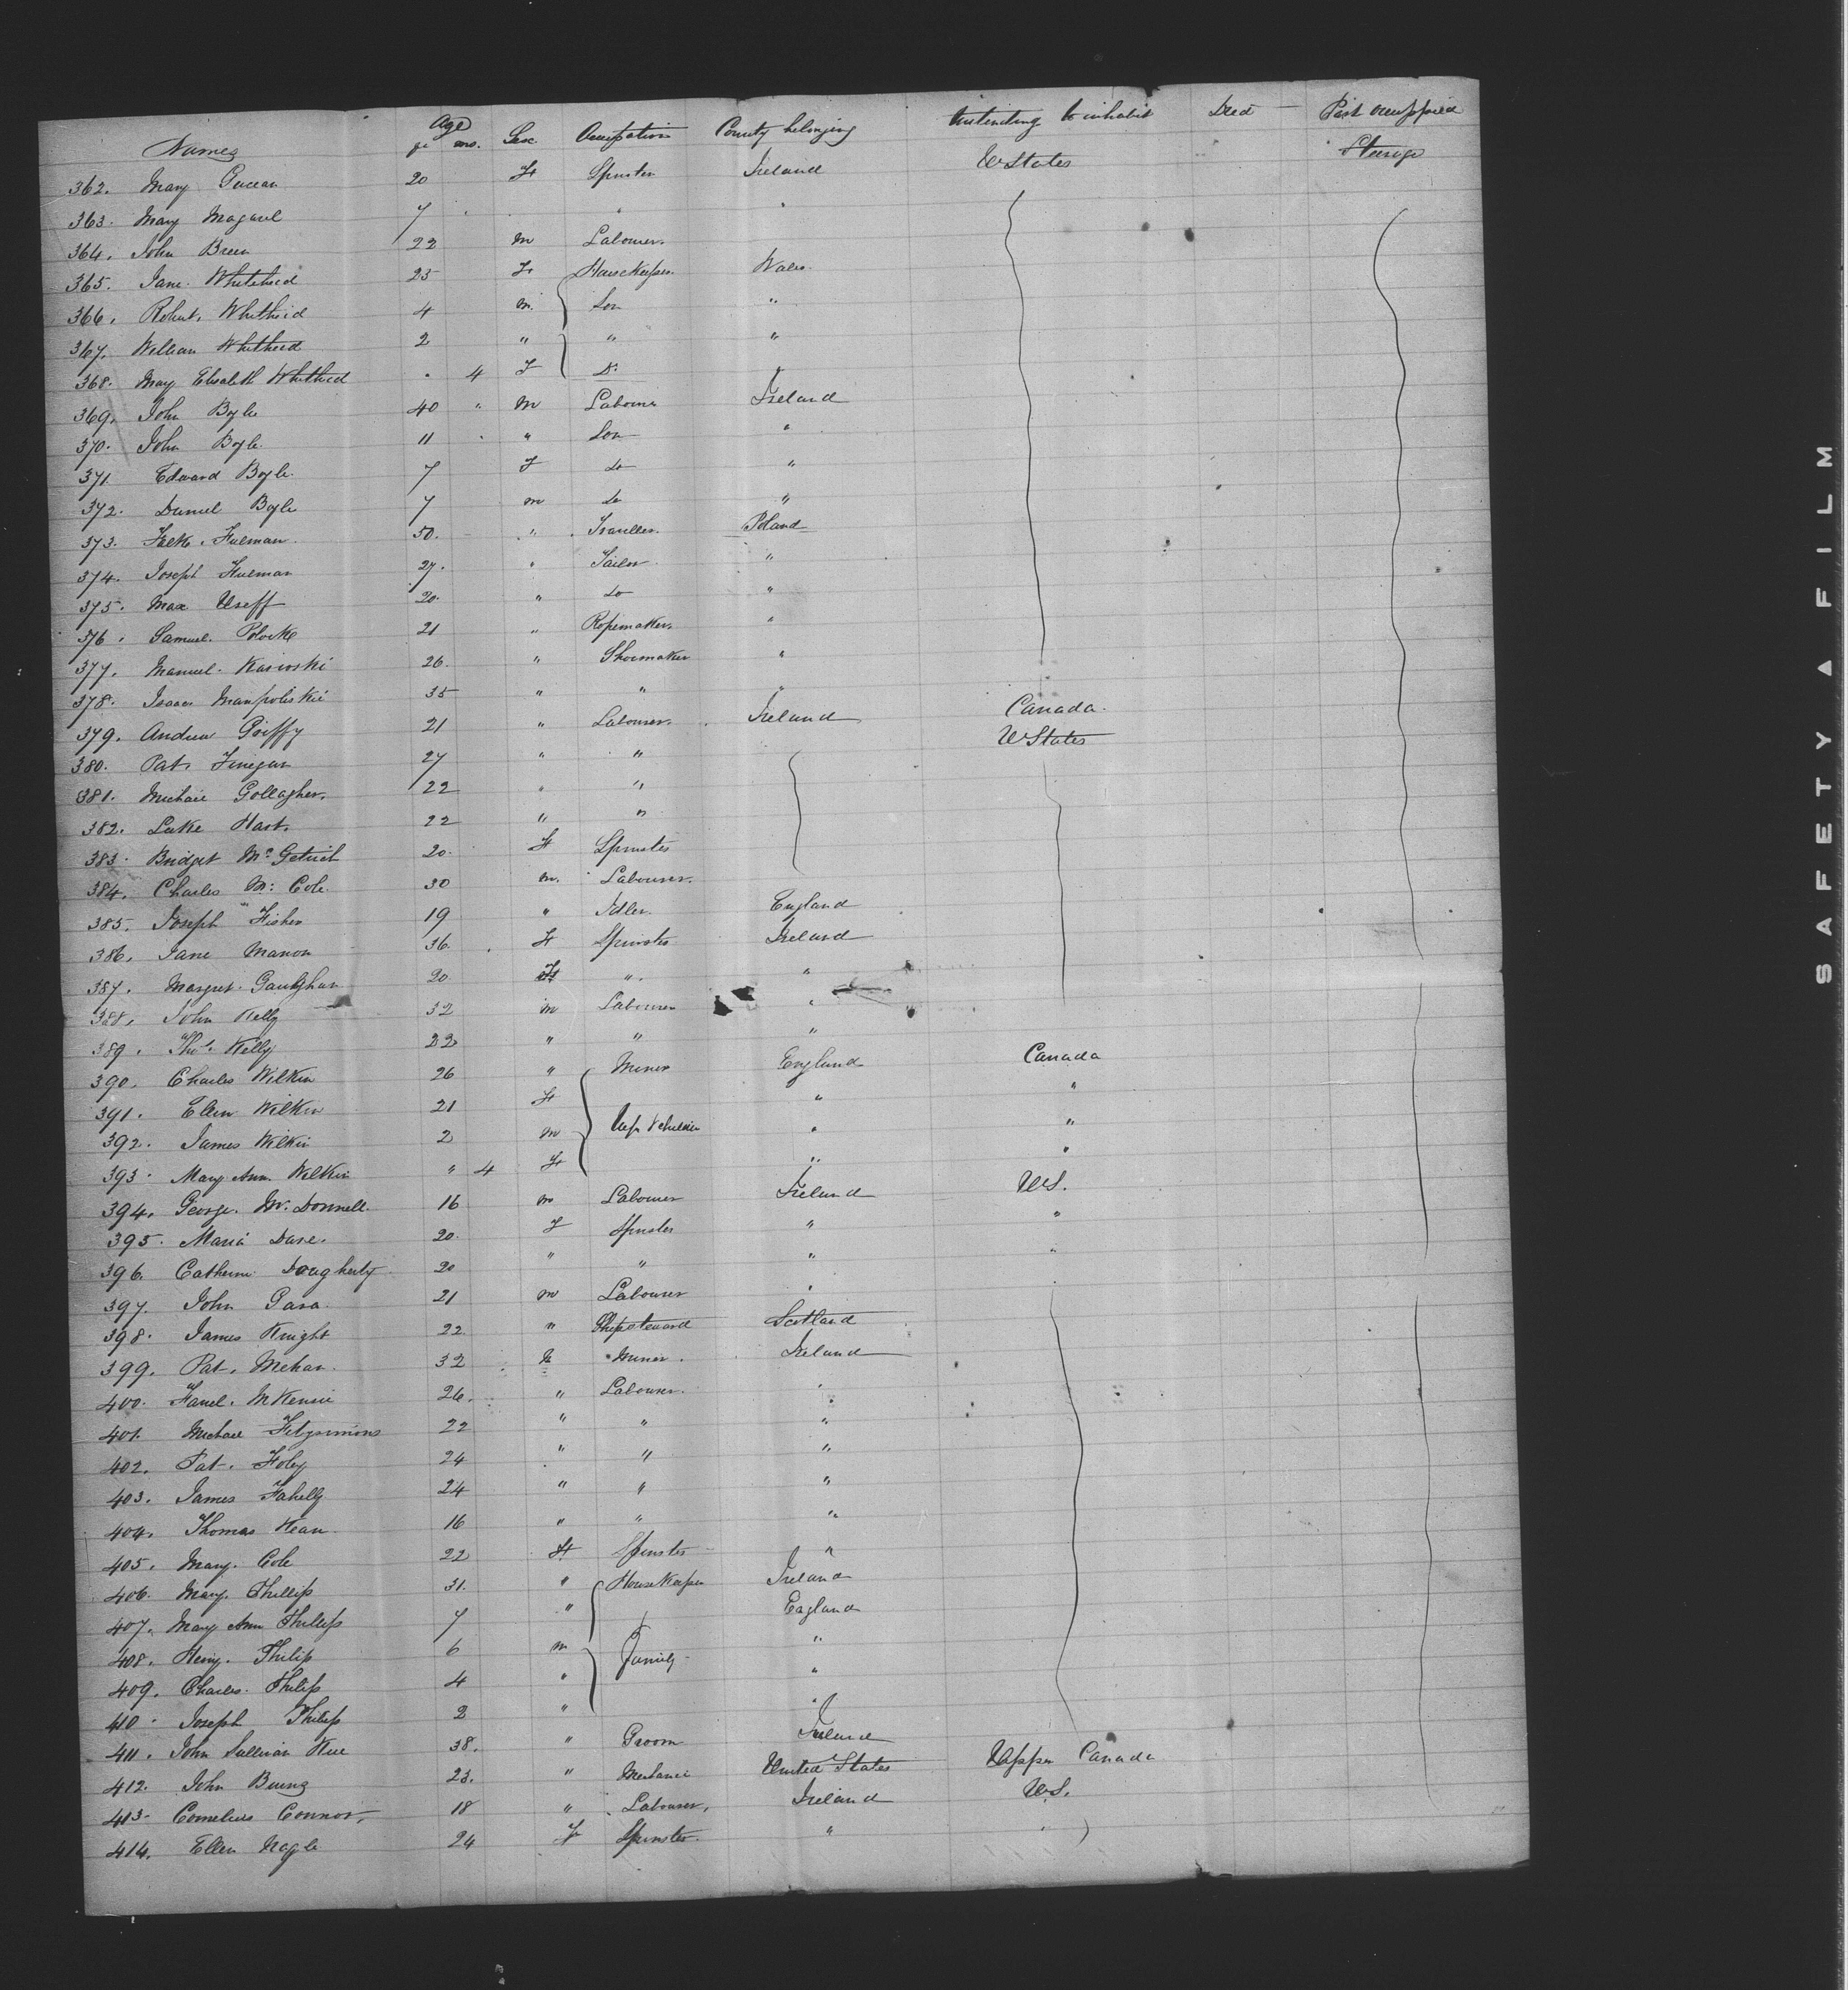 Names Age yr mo. Sex Occupation County belonging Intending to inhabit Died Part occuppied
362. Mary 20 F Spinster Ireland U States Steerage
363. Mary Magarel 7 " "
364. John Breen 22 m Labourer
365. Jane Whitehead 25 F Housekeeper Wales
366. Robert Whithead 4 m Son "
367. William Whithead 2 " " "
368. Mary Elisabeth Whithead . 4 F Do "
369. John Boyle 40 " m Labourer Ireland
370. John Boyle 11 " Son "
371. Edward Boyle 7 F do "
372. Daniel Boyle 7 m do "
373. Hulman 50. " Traveller Poland
374. Joseph Hulman 27. " Tailor "
375. Max Useff 20 " do "
376. Samuel Polocke 21 " Ropemaker "
377. Manuel Kasioski 26. " Shoemaker "
378. Isaac Manpoliskie 35 " " "
379. Andrew Griffy 21 " Labourer Ireland Canada.
380. Pat. Finegan 27 " " U States
381. Michael Gollagher 22 " "
382. Luke Hart. 22 " "
383. Bridget Mc 20 F Spinster
384. Charles Mc Cole 30 m. Labourer.
385. Joseph Fisher 19 " Idler England
386. Jane Manon 36. F Spinster Ireland
387. Margret Gaughan 20 F " "
388. John Kelly 32 m Labourer "
389. Thos. Kelly 22 " " "
390. Charles Wilkin 26 " Miner England Canada
391. Ellen Wilkin 21 F Wife & children " "
392. James Wilkin 2 m " "
393. Mary Ann Wilkin " 4 F " "
394. George McDonnell 16 m Labourer Ireland U S.
395. Maria Dare. 20. F Spinster " "
396. Catherine Dougherty 20 " " " "
397. John Gara 21 m Labourer "
398. James Knight 22 " Ship steward Scotland
399. Pat. Mehan 32 m Miner Ireland
400. McKensie 26. " Labourer "
401. Michael Fitzsimons 22 " " "
402. Pat. Foley 24 " " "
403. James Fahelly 24 " " "
404. Thomas Kean 16 " " "
405. Mary Cole 22 F Spinster "
406. Mary Phillips 31. " Housekeeper Ireland
407. Mary Ann Phillips 7 " England
408. Heny. Philip 6 m Family "
409. Charles Philip 4 " "
410 Joseph Philip 2 " "
411. John Sullivan 38. " Groom Ireland
412. John Bueng 23. " Mechanic United States Upper Canada
413. Cornelius Connor 18 " Labourer, Ireland U S.
414. Ellen Nagle 24 F Spinster " "
SAFETY ▲ FILM